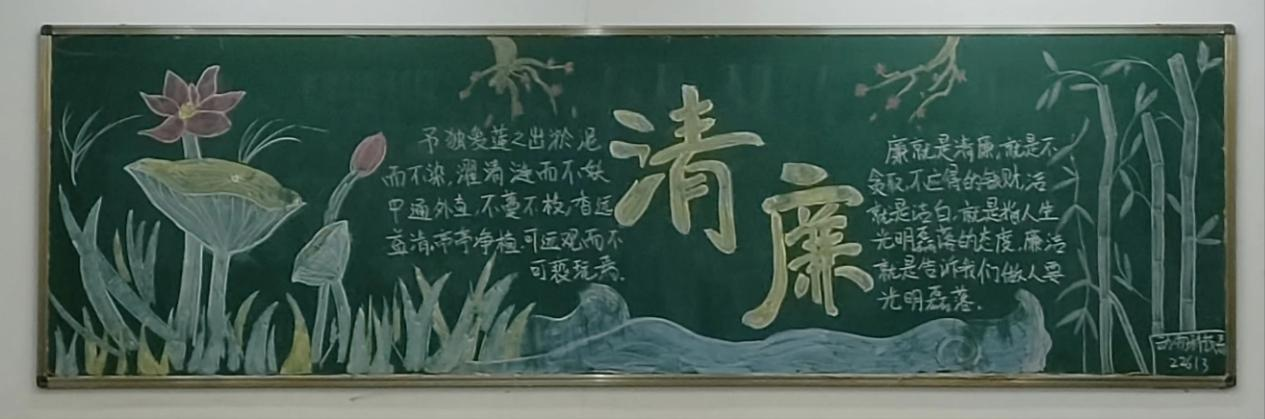 予独爱莲之出淤泥
而不染,濯清涟而不妖
中通外直,不蔓不枝,香远
益清,亭亭净植,可远观而不
可亵玩焉。
清
廉
廉就是清廉,就是不
贪取不应得的钱财,洁
就是洁白,就是指人生
光明磊落的态度,廉洁
就是告诉我们做人要
光明磊落。
22613